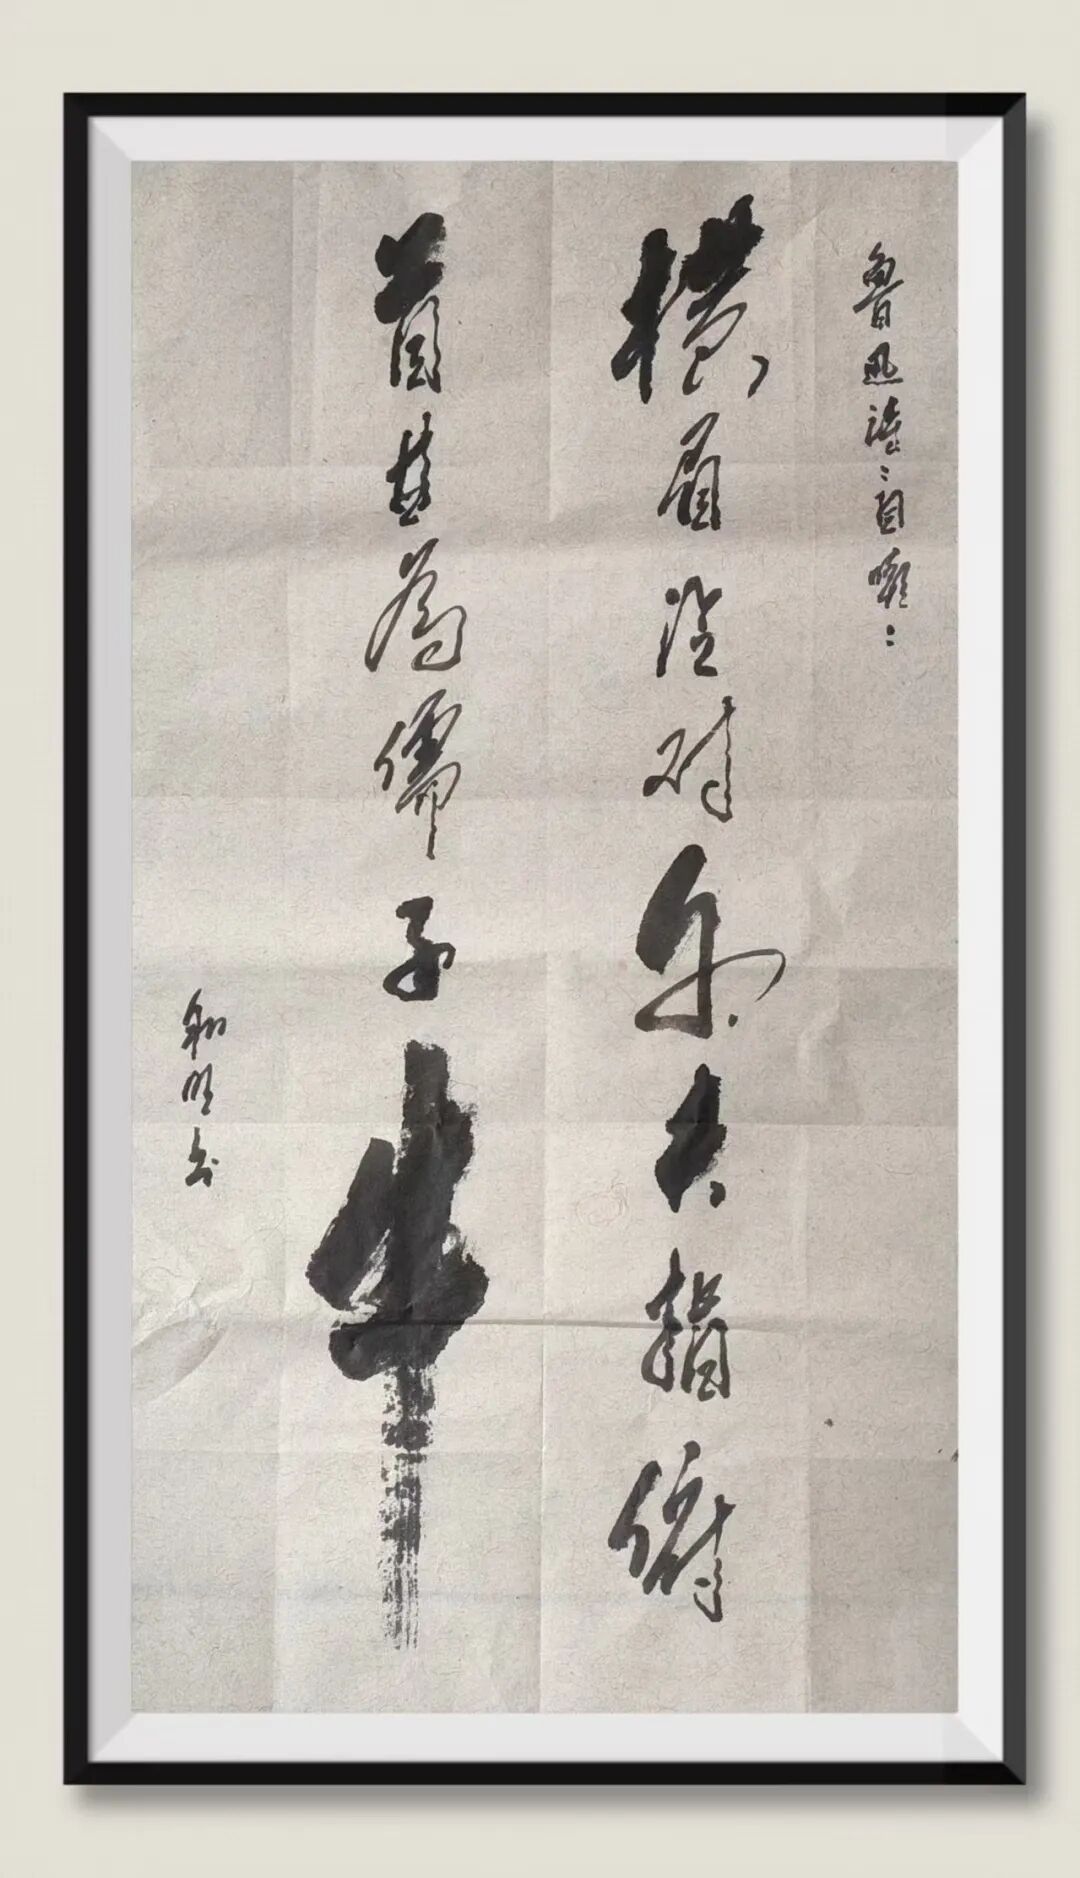 魯迅詩:自嘲:
横眉冷对千夫指俯
首甘為儒子牛
和明书